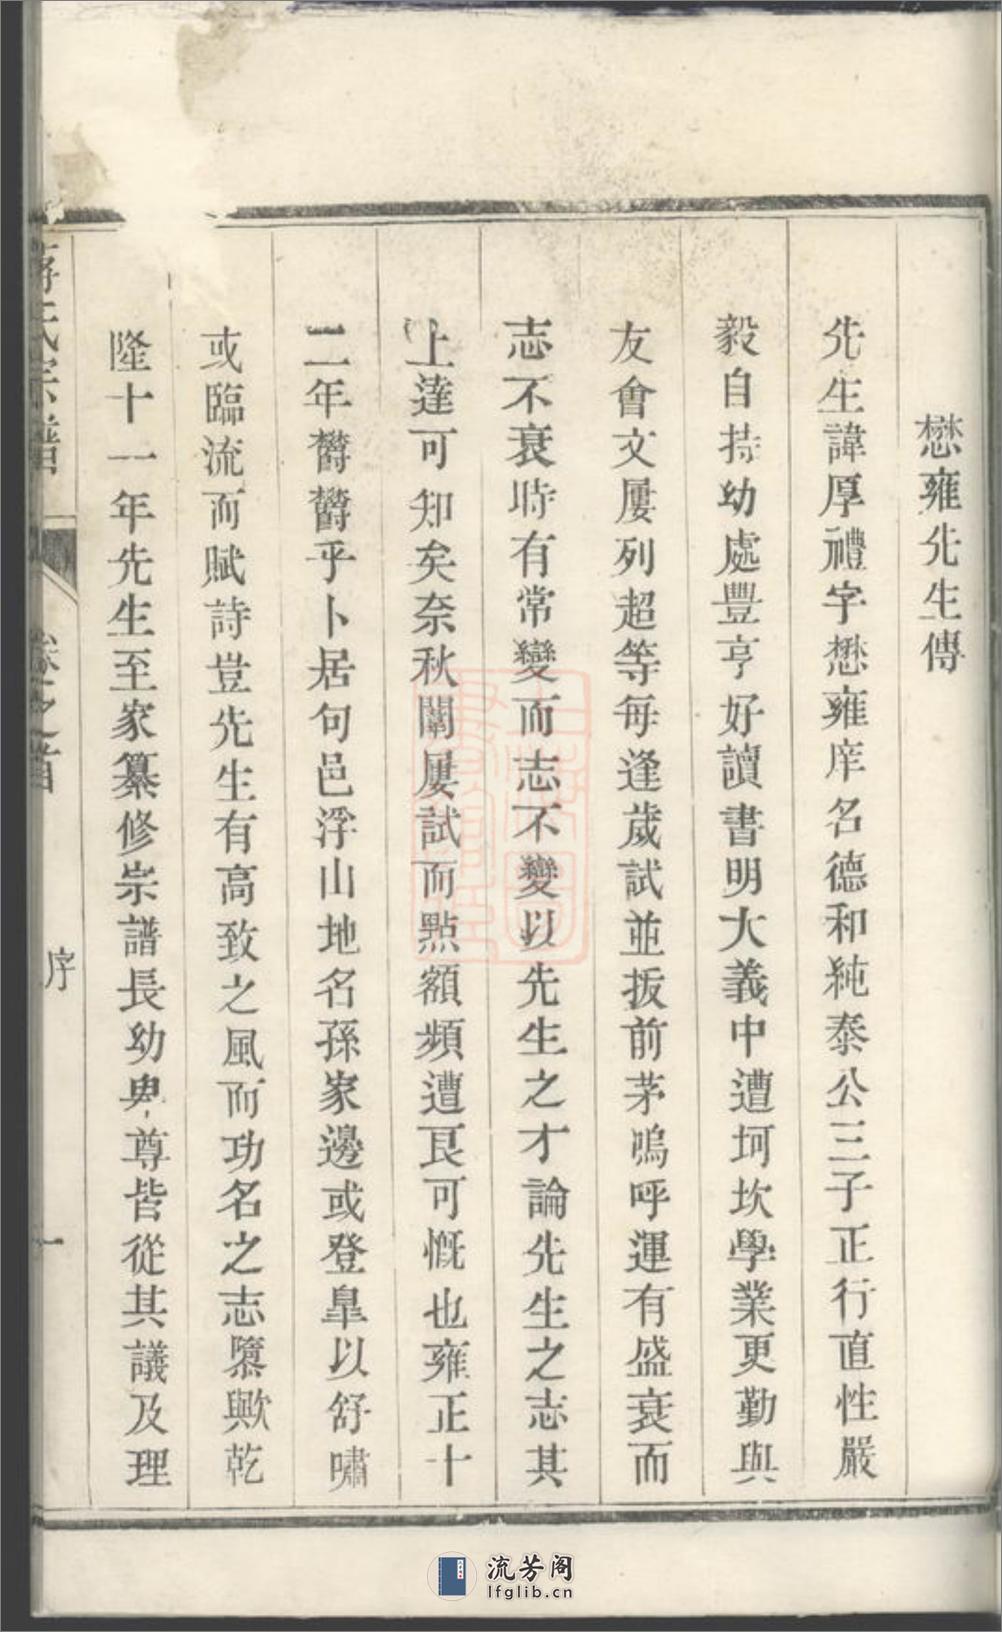 懋雍先生傳
先生諱厚禮字懋雍庠名德和純泰公三子正行直性嚴
毅自持幼處豐亨好讀書明大義中遭坷坎學業更勤與
友會文屢列超等每逢歲試並拔前茅嗚呼運有盛衰而
志不衰時有常變而志不變以先生之才論先生之志其
上達可知矣奈秋闈屢試而點額頻遭良可慨也雍正十
二年欝欝乎卜居句邑浮山地名孫家邊或登臯以舒嘯
或臨流而賦詩豈先生有高致之風而功名之志隳歟乾
隆十一年先生至家纂修宗譜長幼卑尊皆從其議及理
蔣氏宗譜
卷之首
序
一
流芳阁
lfglib.cn